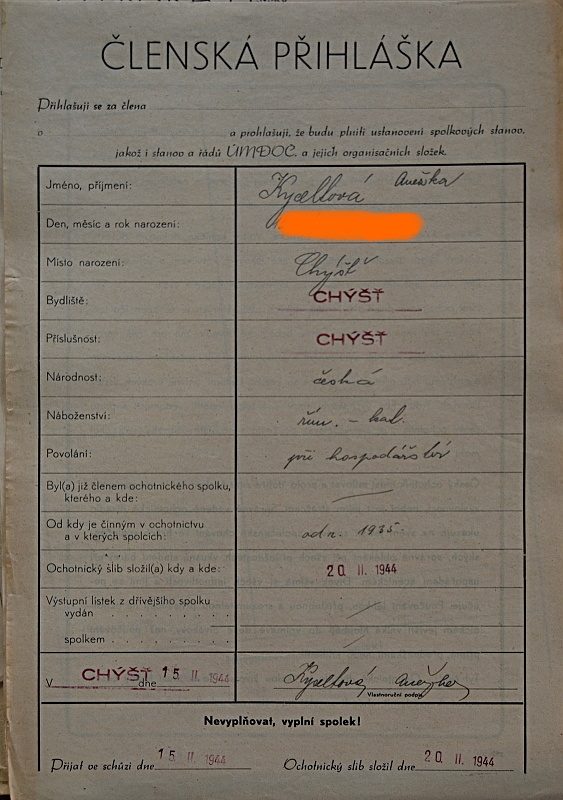 ČLENSKÁ PŘIHLÁŠKA
Přihlašuji se za člena
o a prohlašuji, že budu plniti ustanovení spolkových stanov,
jakož i stanov a řádů ÚMDOČ. a jejich organisačních složek.
Jméno, příjmení: Kyseltová Anežka
Den, měsíc a rok narození:
Místo narození: Chýšť
Bydliště: CHÝŠŤ
Příslušnost: CHÝŠŤ
Národnost: česká
Náboženství: řím. – kat.
Povolání: při hospodářství
Byl(a) již členem ochotnického spolku,
kterého a kde:
Od kdy je činným v ochotnictvu
a v kterých spolcích: od r. 1935
Ochotnický slib složil(a) kdy a kde: 20 II. 1944
Výstupní listek z dřívějšího spolku
vydán . . . . . . . . . . . .
spolkem . . . . . . . . . .
V CHÝŠŤ dne 15 II. 1944 Kyseltová Anežka
Vlastnoruční podpis
Nevyplňovat, vyplní spolek!
Přijat ve schůzi dne 15 II. 1944 Ochotnický slib složil dne 20 II. 1944